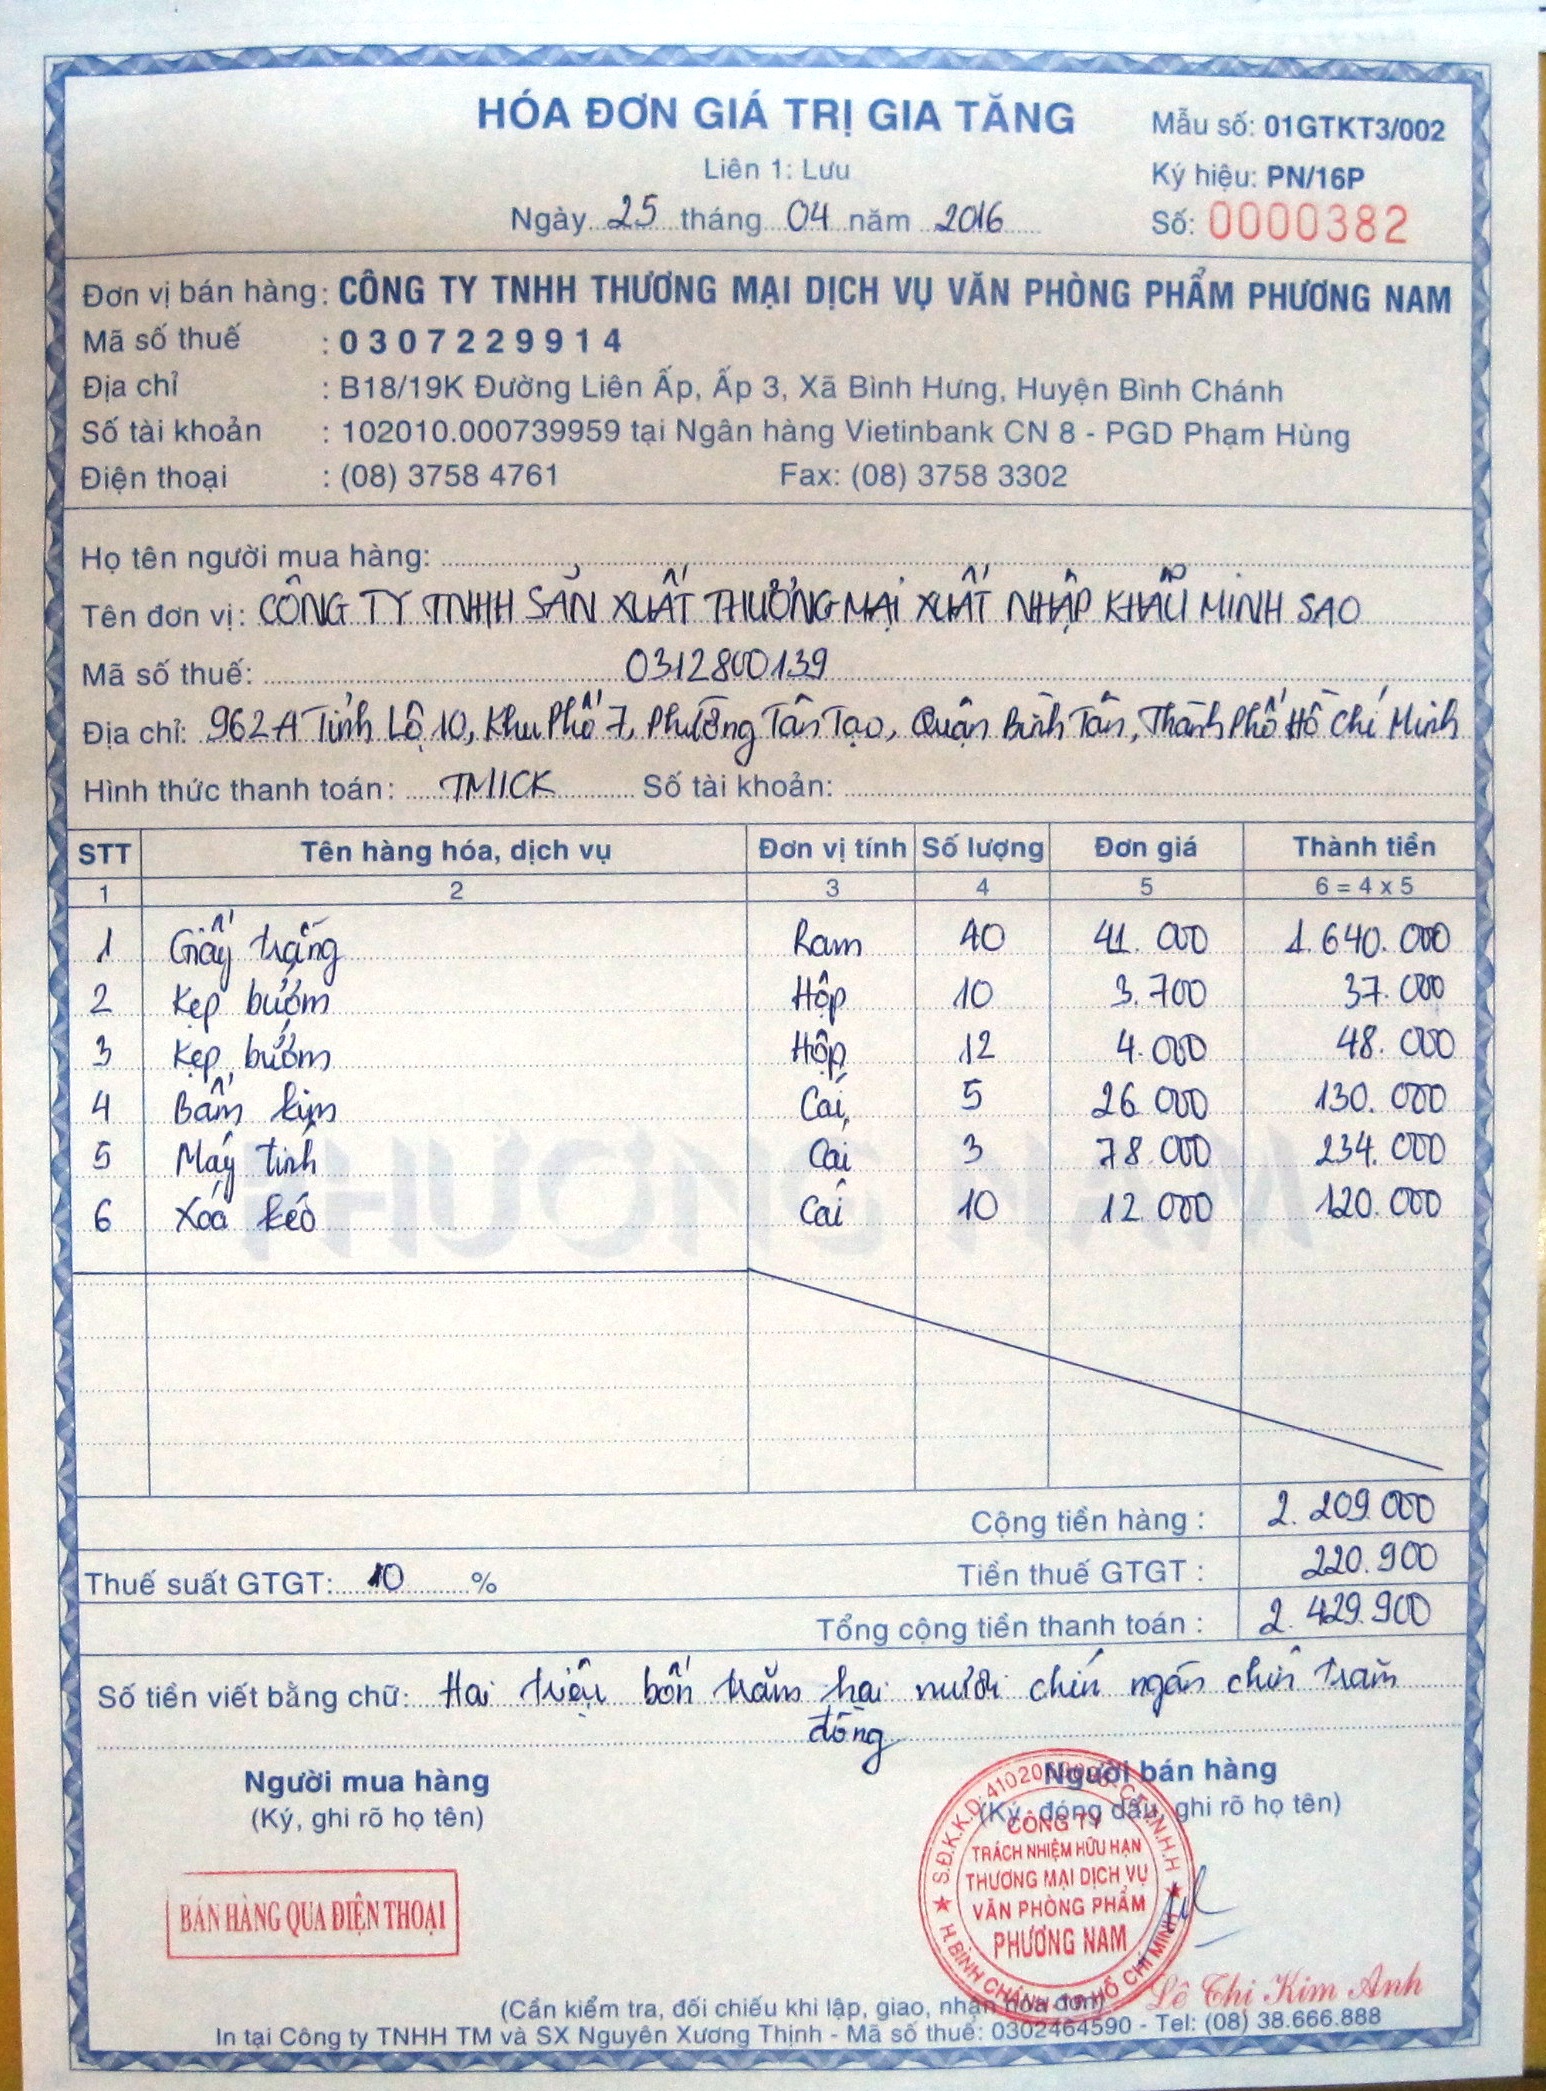 HÓA ĐƠN GIÁ TRỊ GIA TĂNG
Mẫu số: 01GTKT3/002
Liên 1: Lưu
Ký hiệu: PN/16P
Ngày 25 tháng 04 năm 2016
Số: 0000382
Đơn vị bán hàng: CÔNG TY TNHH THƯƠNG MẠI DỊCH VỤ VĂN PHÒNG PHẨM PHƯƠNG NAM
Mã số thuế : 0307229914
Địa chỉ : B18/19K Đường Liên Ấp, Ấp 3, Xã Bình Hưng, Huyện Bình Chánh
Số tài khoản : 102010.000739959 tại Ngân hàng Vietinbank CN 8 - PGD Phạm Hùng
Điện thoại : (08) 3758 4761 Fax: (08) 3758 3302
Họ tên người mua hàng:
Tên đơn vị: CÔNG TY TNHH SẢN XUẤT THƯƠNG MẠI XUẤT NHẬP KHẨU MINH SAO
Mã số thuế: 0312800139
Địa chỉ: 962A Tỉnh Lộ 10, Khu Phố 7, Phường Tân Tạo, Quận Bình Tân, Thành Phố Hồ Chí Minh
Hình thức thanh toán: TM/CK Số tài khoản:
STT Tên hàng hóa, dịch vụ Đơn vị tính Số lượng Đơn giá Thành tiền
1 2 3 4 5 6 = 4 x 5
1 Giấy trắng Ram 40 41.000 1.640.000
2 Kẹp bướm Hộp 10 3.700 37.000
3 Kẹp bướm Hộp 12 4.000 48.000
4 Bấm kim Cái 5 26.000 130.000
5 Máy tính Cái 3 78.000 234.000
6 Xoá kéo Cái 10 12.000 120.000
PHƯƠNG NAM
Cộng tiền hàng: 2.209.000
Thuế suất GTGT: 10 % Tiền thuế GTGT: 220.900
Tổng cộng tiền thanh toán: 2.429.900
Số tiền viết bằng chữ: Hai triệu bốn trăm hai mươi chín ngàn chín trăm
đồng
Người mua hàng Người bán hàng
(Ký, ghi rõ họ tên) (Ký, đóng dấu, ghi rõ họ tên)
BÁN HÀNG QUA ĐIỆN THOẠI
CÔNG TY
TRÁCH NHIỆM HỮU HẠN
THƯƠNG MẠI DỊCH VỤ
VĂN PHÒNG PHẨM
PHƯƠNG NAM
Lê Thị Kim Anh
(Cần kiểm tra, đối chiếu khi lập, giao, nhận hóa đơn)
In tại Công ty TNHH TM và SX Nguyên Xương Thịnh - Mã số thuế: 0302464590 - Tel: (08) 38.666.888